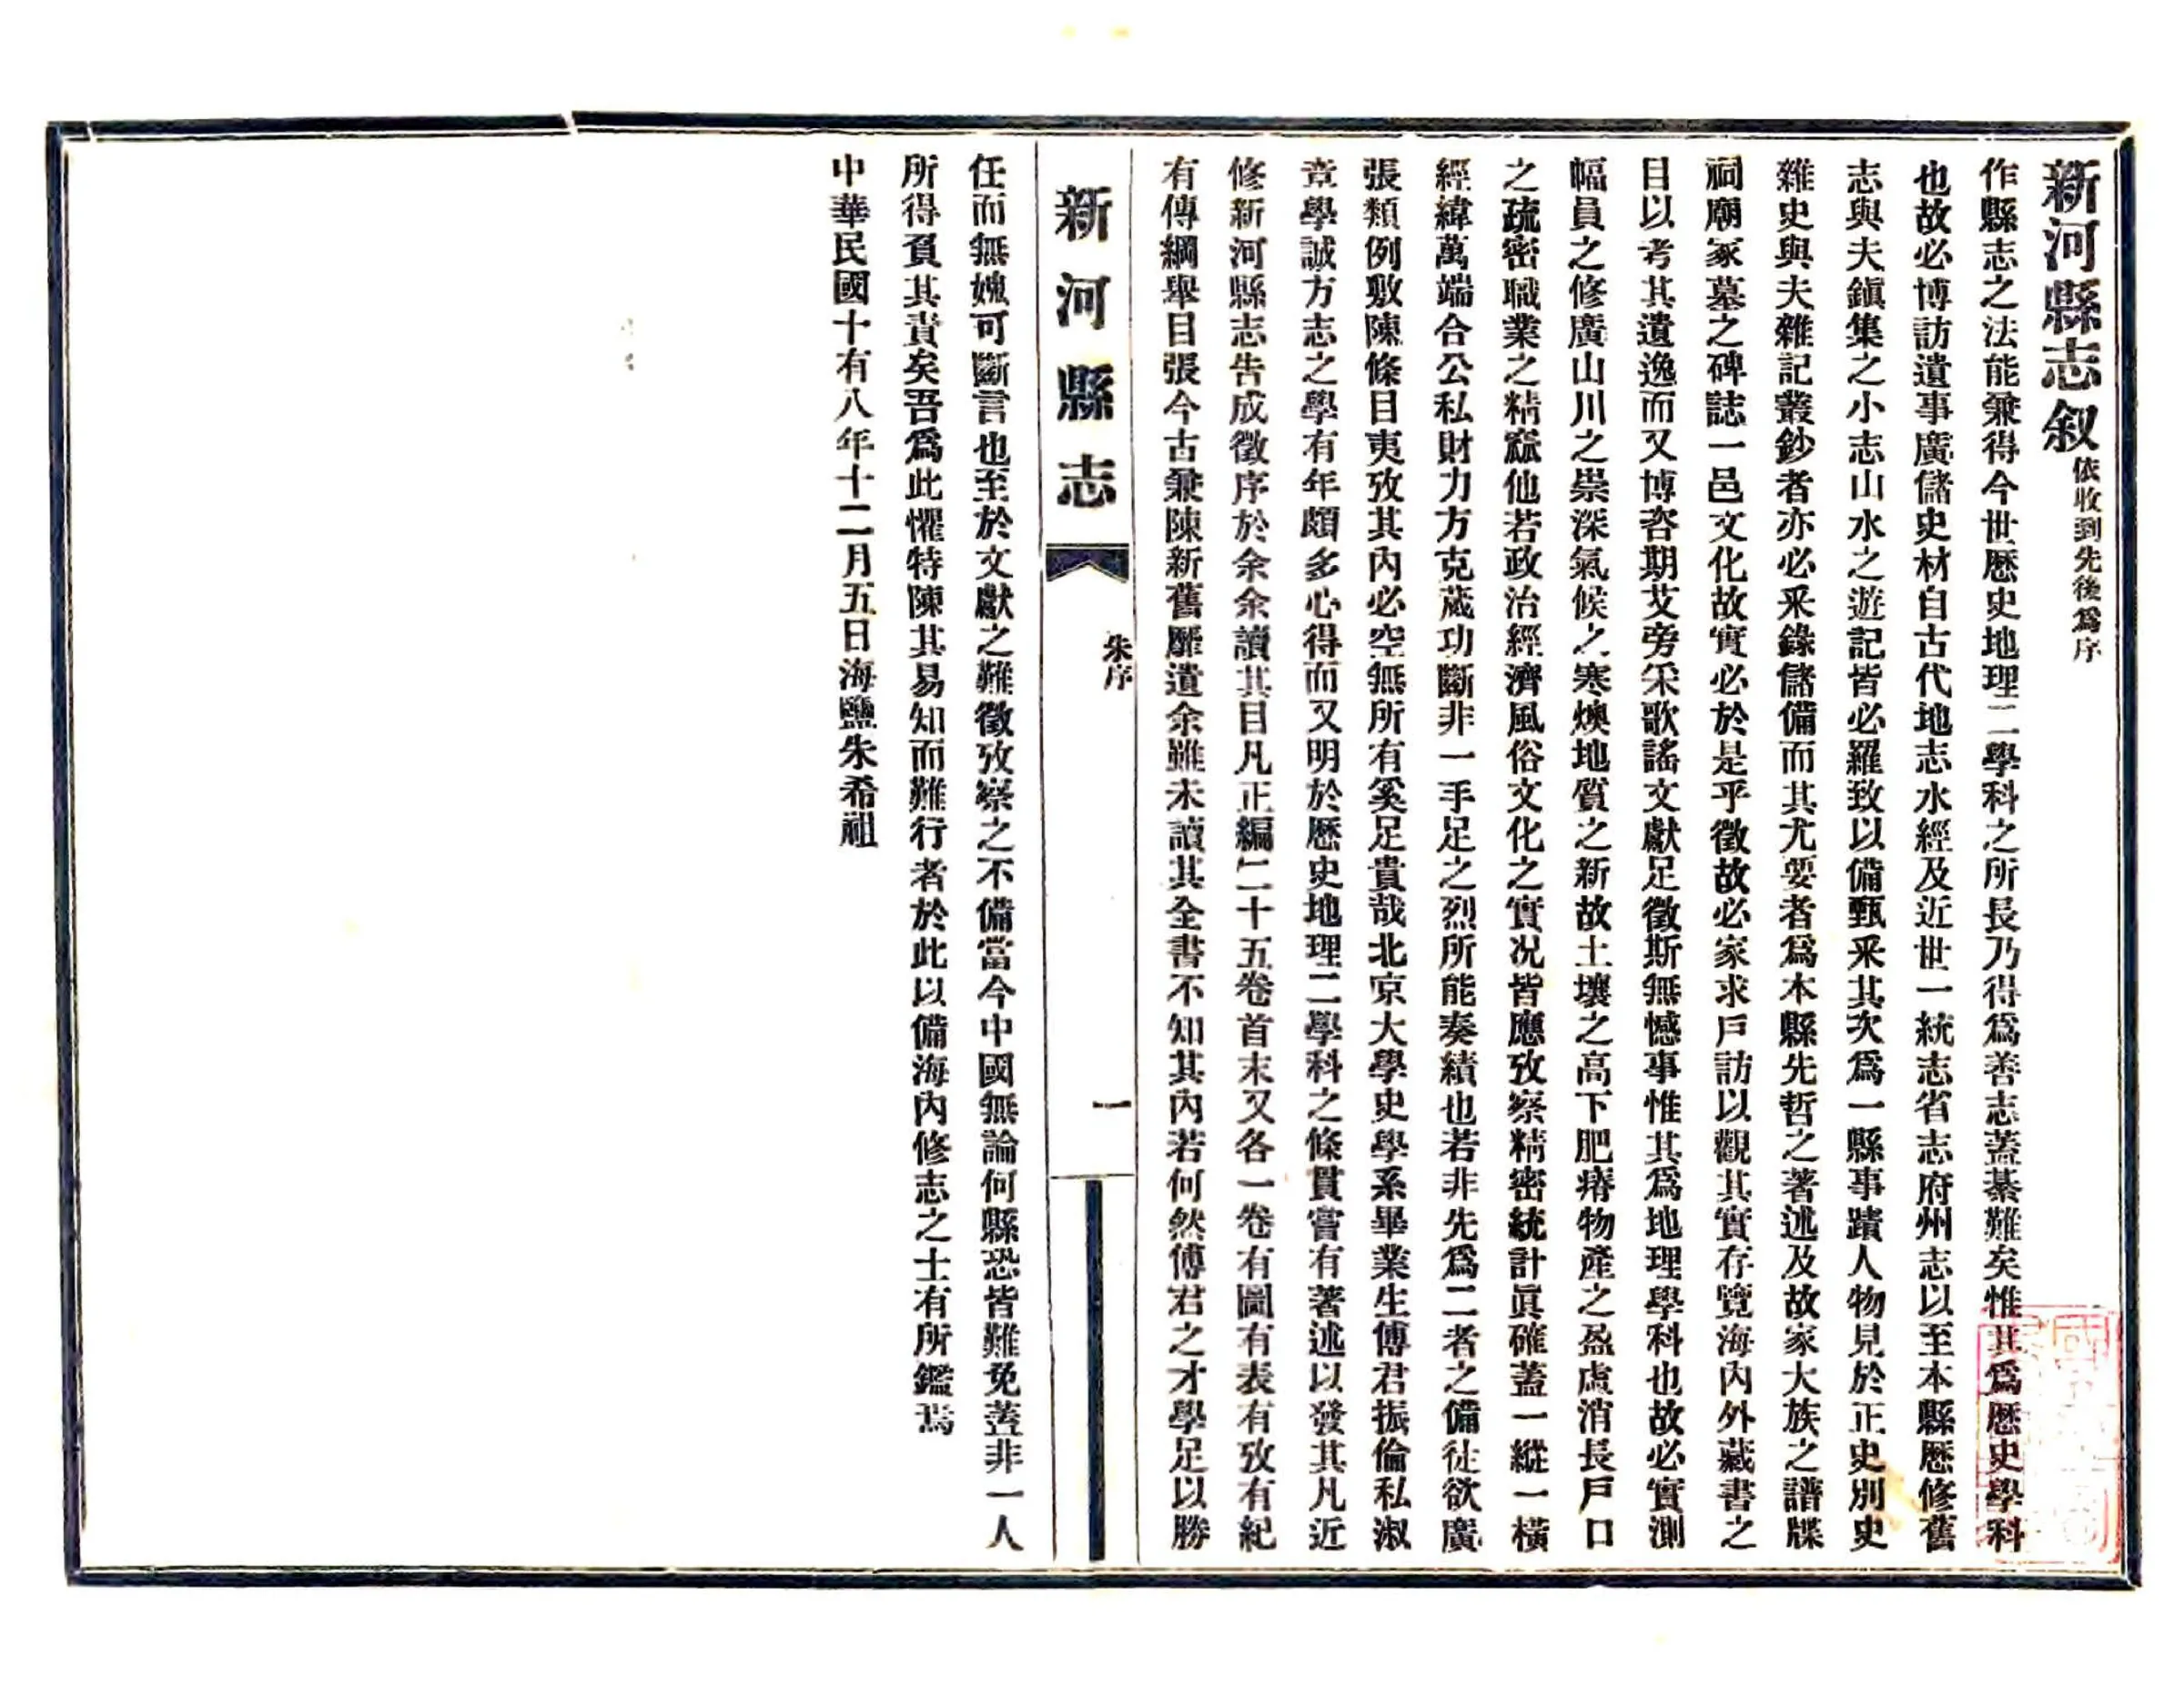 新河縣志叙
依收到先後爲序
作縣志之法能兼得今世歷史地理二學科之所長乃得爲善志蓋綦難矣惟其爲歷史學科
也故必博訪遺事廣儲史材自古代地志水經及近世一統志省志府州志以至本縣歷修舊
志與夫鎭集之小志山水之遊記皆必羅致以備甄釆其次爲一縣事蹟人物見於正史別史
雜史與夫雜記叢鈔者亦必釆錄儲備而其尤要者爲本縣先哲之著述及故家大族之譜牒
祠廟冢墓之碑誌一邑文化故實必於是乎徵故必家求戶訪以觀其實存覽海內外藏書之
目以考其遺逸而又博咨期艾旁采歌謠文獻足徵斯無憾事惟其爲地理學科也故必實測
幅員之修廣山川之崇深氣候之寒燠地質之新故土壤之高下肥瘠物產之盈虛消長戶口
之疏密職業之精窳他若政治經濟風俗文化之實况皆應攷察精密統計眞確蓋一縱一橫
經緯萬端合公私財力方克蕆功斷非一手足之烈所能奏績也若非先爲二者之備徒欲廣
張類例敷陳條目夷攷其內必空無所有奚足貴哉北京大學史學系畢業生傅君振倫私淑
章學誠方志之學有年頗多心得而又明於歷史地理二學科之條貫嘗有著述以發其凡近
修新河縣志告成徵序於余余讀其目凡正編二十五卷首末又各一卷有圖有表有攷有紀
有傳綱舉目張今古兼陳新舊靡遺余雖未讀其全書不知其內若何然傅君之才學足以勝
新河縣志
朱序
一
任而無媿可斷言也至於文獻之難徵攷察之不備當今中國無論何縣恐皆難免蓋非一人
所得負其責矣吾爲此懼特陳其易知而難行者於此以備海內修志之士有所鑑焉
中華民國十有八年十二月五日海鹽朱希祖